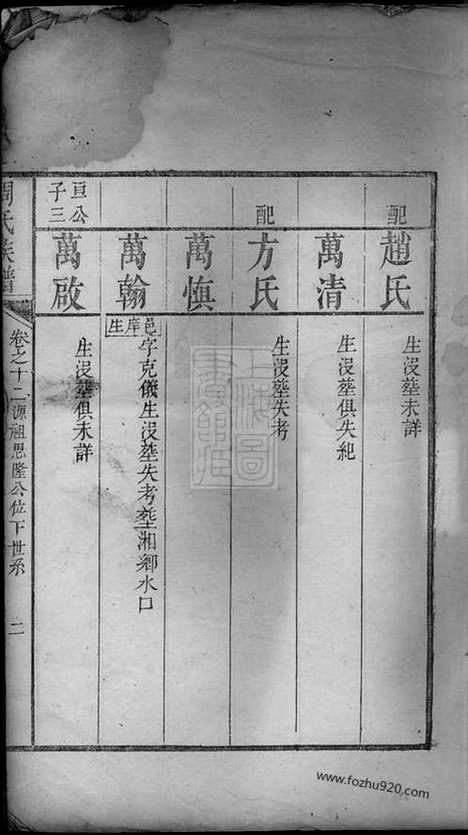 配
趙氏
生没塟未詳
萬清
生没塟俱失紀
配
方氏
生没塟失考
萬慎
萬翰
邑庠生
字克儀生没塟失考塟湘鄉水口
亘公
子三
萬啟
生没塟俱未詳
周氏族譜
卷之十二源祖思隆公位下世系
二
上海圖書館藏
www.fozhu920.com